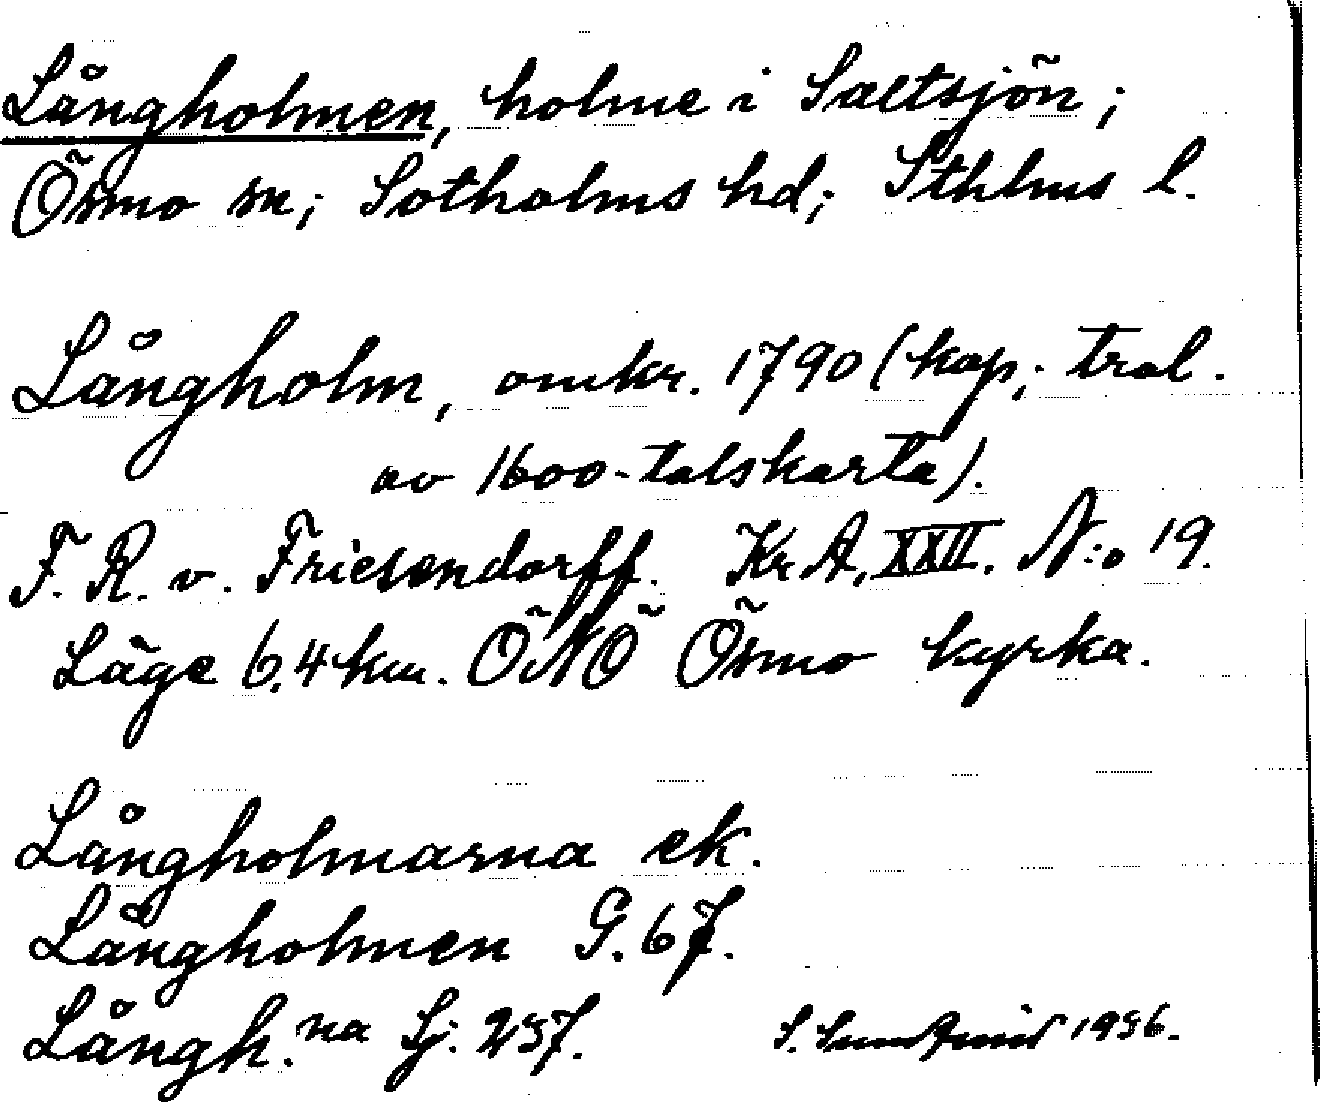 Långholmen, holme i Saltsjön;
Ösmo sn; Sotholms hd; Sthlms l.
Långholm, omkr. 1790 (kop; trol.
av 1600-talskarta).
F. R. v. Friesendorff. Kr.A, XXII. N:o 19.
Läge 6,4 km. ÖNÖ Ösmo kyrka.
Långholmarna ek.
Långholmen G. 67.
Långh.na Sj. 257. S. 1936.